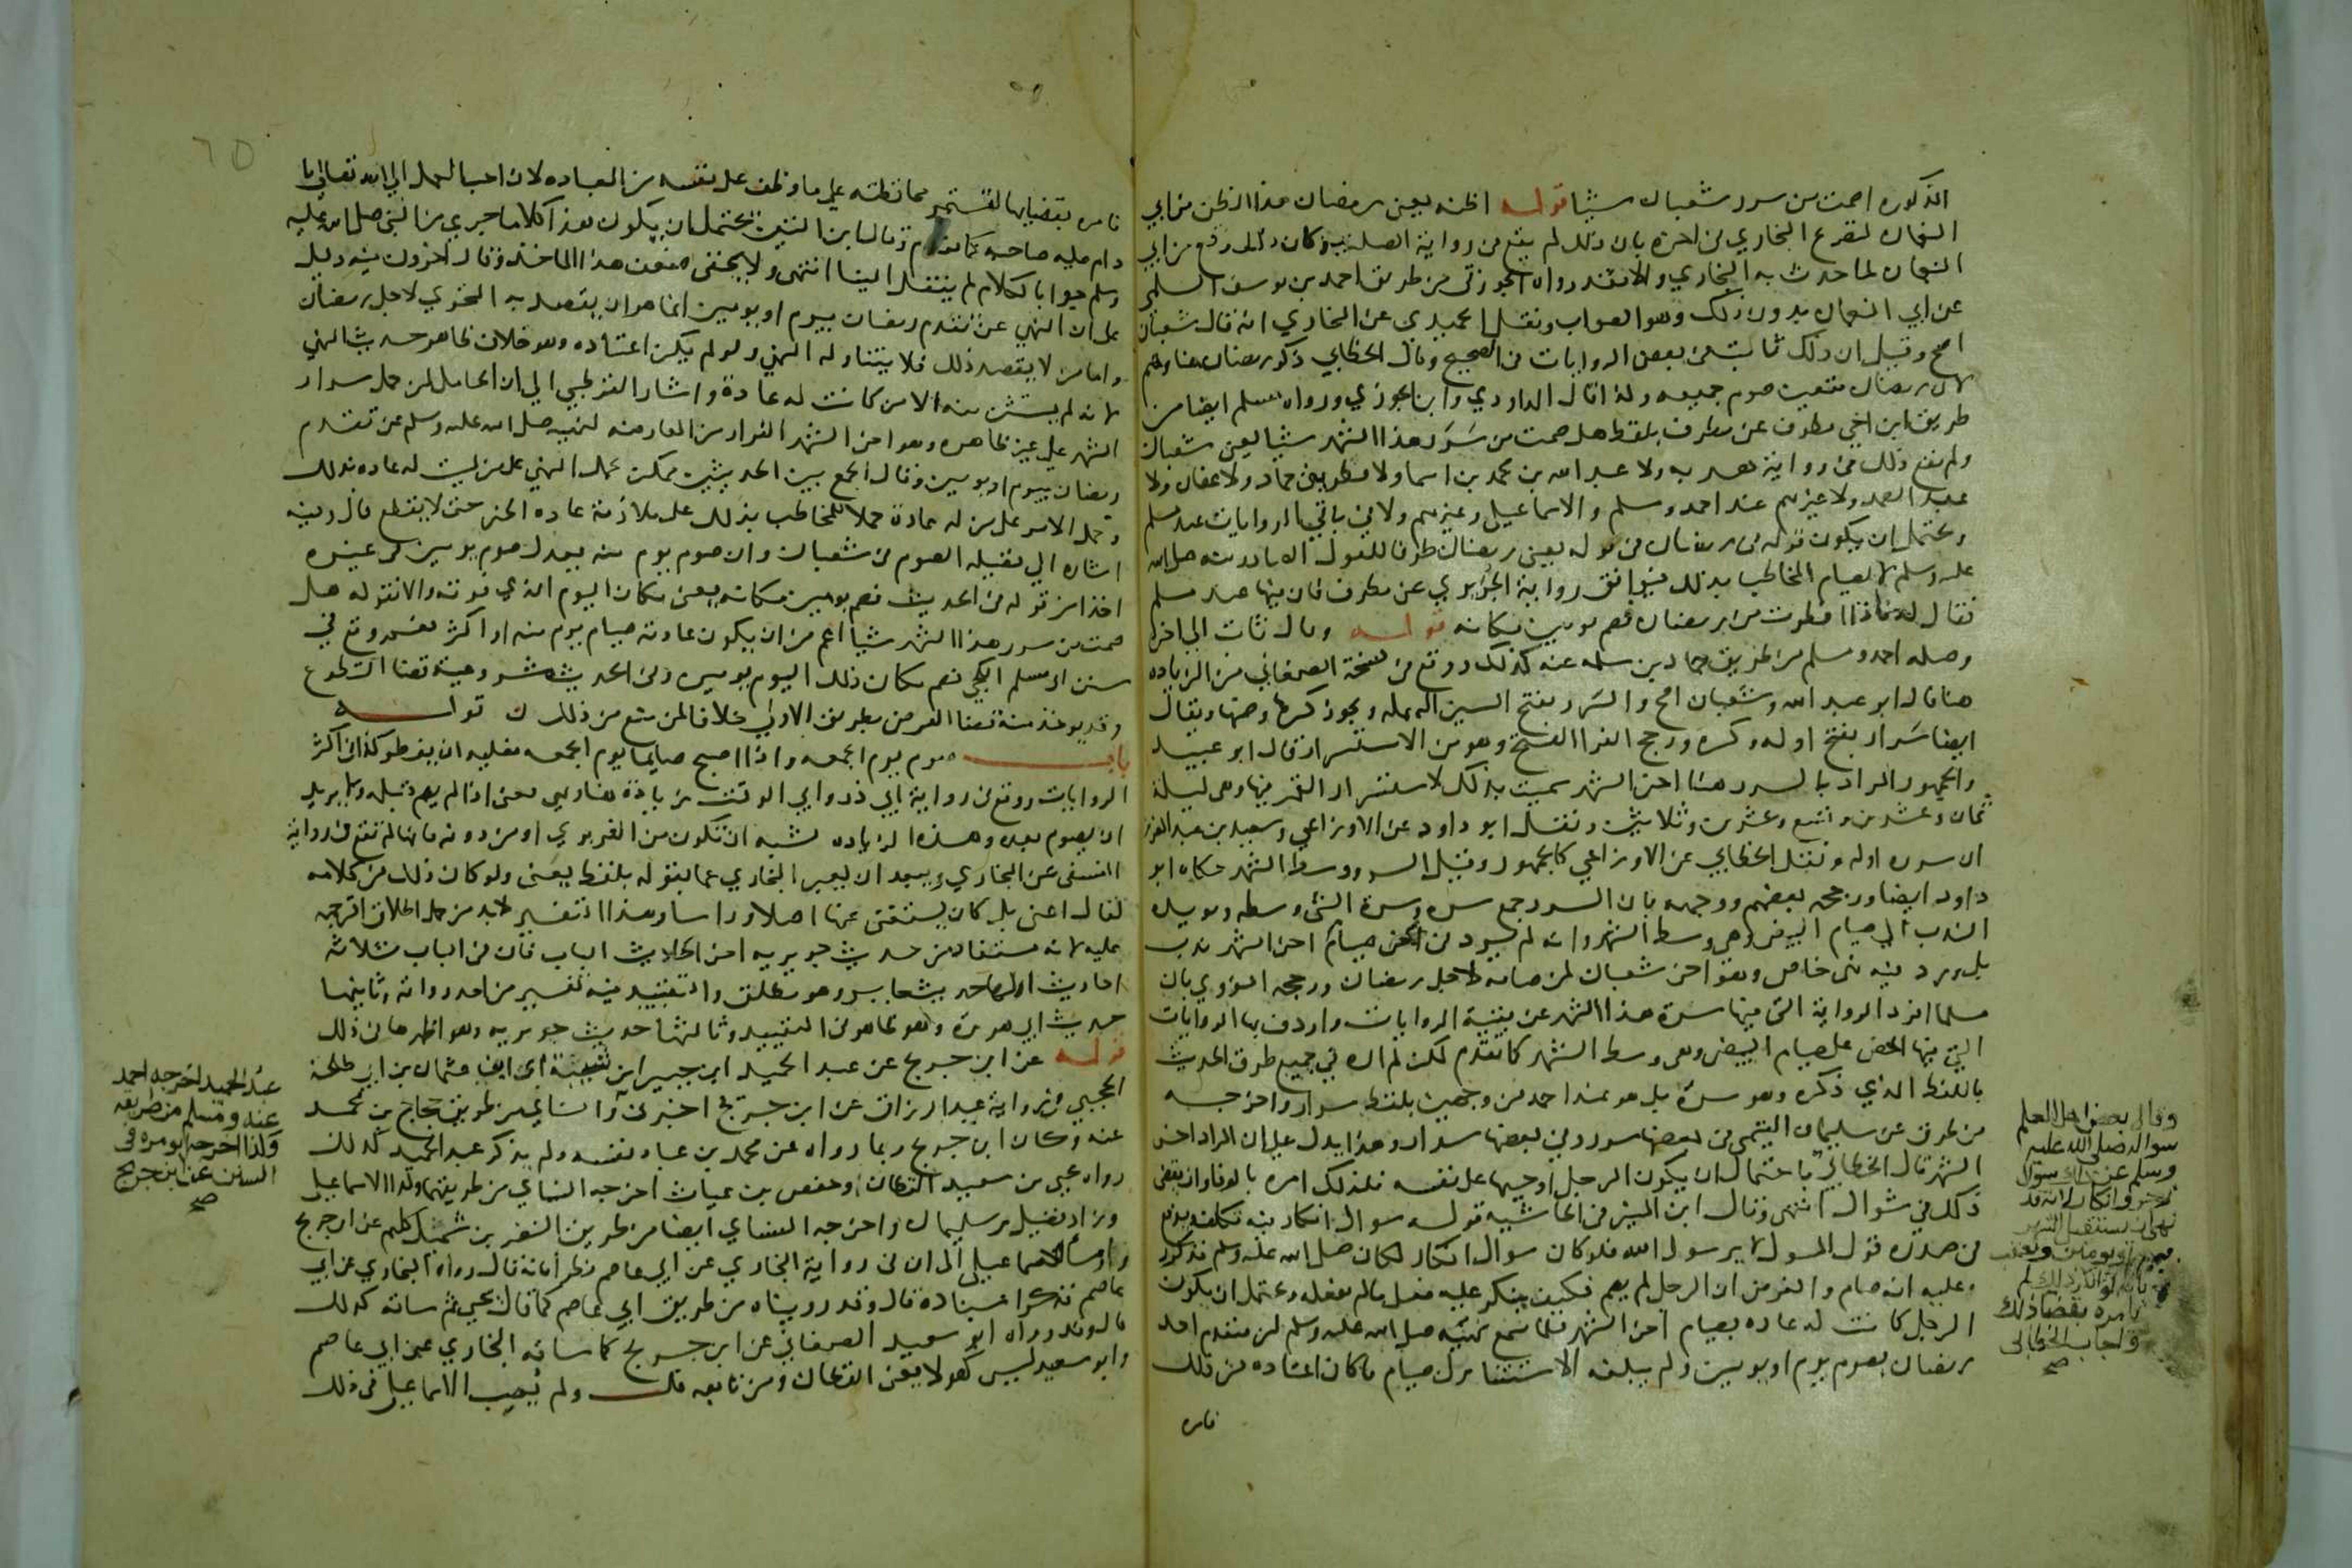 المذكورة اصمت من سرر شعبان شيئا قوله اظنه يعني رمضان هذا الظن من ابي
النعمان لتصريح البخاري في اخره بان ذلك لم يقع في رواية الصلت وكان ذلك وقع من ابي
النعمان لما حدث به البخاري والا فقد رواه الجوزقي من طريق احمد بن يوسف السلمي
عن ابي النعمان بدون ذلك وهو الصواب ونقل الحميدي عن البخاري انه قال شعبان
اصح وقيل ان ذلك ثابت في بعض الروايات في الصحيح وقال الخطابي ذكر رمضان هنا وهم
لان رمضان متعين صوم جميعه وكذا قال الداودي وابن الجوزي ورواه مسلم ايضا من
طريق ابن اخي مطرف عن مطرف بلفظ هل صمت من سرر هذا الشهر شيئا يعني شعبان
ولم يقع ذلك في رواية هدبه ولا عبد الله بن محمد بن اسما ولا قطر بن حماد ولا عفان ولا
عبد الصمد ولا غيرهم عند احمد ومسلم والاسماعيلي وغيرهم ولا في باقي الروايات عند مسلم
ويحتمل ان يكون قوله في رمضان في قوله يعني رمضان ظرفا للقول الصادر منه صلى الله
عليه وسلم لا لصيام المخاطب بذلك فيوافق رواية الجريري عن مطرف فان فيها عند مسلم
فقال له فاذا افطرت من رمضان فصم يومين مكانه قوله وقال ثابت الى اخره
وصله احمد ومسلم من طريق حماد بن سلمه عنه كذلك ووقع في نسخة الصغاني من الزياده
هنا قال ابو عبد الله وشعبان اصح والسرر بفتح السين المهمله ويجوز كسرها وضمها ويقال
ايضا سرار بفتح اوله وكسره ورجح الفرا الفتح وهو من الاستسرار قال ابو عبيد
والجمهور المراد بالسرر هنا اخر الشهر سميت بذلك لاستسرار القمر فيها وهي ليلة
ثمان وعشرين وتسع وعشرين وثلاثين ونقل ابو داود عن الاوزاعي وسعيد بن عبد العزيز
ان سرره اوله ونقل الخطابي عن الاوزاعي كالجمهور وقيل السرر وسط الشهر حكاه ابو
داود ايضا ورجحه بعضهم ووجهه بان السرر جمع سره وسرة الشئ وسطه ويويده
الندب الى صيام البيض وهي وسط الشهر وانه لم يرد في صيام اخر الشهر ندب
بل ورد فيه نهي خاص وهو اخر شعبان لمن صامه لاجل رمضان ورجحه النووي بان
مسلما افرد الرواية التي فيها سرة هذا الشهر عن بقية الروايات واردف بها الروايات
التي فيها الحض على صيام البيض وهي وسط الشهر كما تقدم لكن لم اره في جميع طرق الحديث
باللفظ الذي ذكره وهو سرة بل هو عند احمد من وجهين بلفظ سرار واخرجه
من طرق عن سليمان التيمي في بعضها سرر وفي بعضها سرار وهذا يدل على ان المراد اخر
الشهر قال الخطابي باحتمال ان يكون الرجل اوجبها على نفسه فلذلك امره بالوفا وان يقضي
ذلك في شوال انتهى وقال ابن المنير في الحاشيه قوله سوال انكار فيه تكلف ويدفع
في صدره قول المسول لا يرسول الله فلو كان سوال انكار لكان صلى الله عليه وسلم قد انكر
عليه انه صام والفرض ان الرجل لم يصم فكيف ينكر عليه فعل مالم يفعله ويحتمل ان يكون
الرجل كانت له عاده بصيام اخر الشهر فلما سمع نهيه صلى الله عليه وسلم ان يتقدم احد
رمضان بصوم يوم او يومين ولم يبلغه الاستثنا ترك صيام ما كان اعتاده من ذلك
فامره
وقال بعض اهل العلم
سواله صلى الله عليه
وسلم عن ذلك سوال
زجر وانكار لانه قد
نهى ان يستقبل الشهر
بيوم او يومين وتعقب
بانه لو انكر ذلك لم
يامره بقضا ذلك
واجاب الخطابي
صح
فامره بقضايها لتستمر محافظته على ما وظف على نفسه من العباده لان احب العمل الى الله تعالى ما
دام عليه صاحبه كما تقدم وقال ابن التين يحتمل ان يكون هذا كلاما جرى من النبي صلى الله عليه
وسلم جوابا لكلام لم ينقل الينا انتهى ولا يخفى ضعف هذا الماخذ وقال اخرون فيه دليل
على ان النهي عن تقدم رمضان بيوم او يومين انما هو ان يقصد به التحري لاجل رمضان
واما من لا يقصد ذلك فلا يتناوله النهي ولو لم يكن اعتاده وهو خلاف ظاهر حديث النهي
لانه لم يستثن منه الا من كانت له عادة واشار القرطبي الى ان الحامل لمن حمل سرار
الشهر على غير ظاهره وهو اخر الشهر الفرار من المعارضه لنهيه صلى الله عليه وسلم عن تقدم
رمضان بيوم او يومين وقال الجمع بين الحديثين ممكن بحمل النهي على من ليست له عاده بذلك
وحمل الامر على من له عادة حملا للمخاطب بذلك على ملازمة عاده الخير حتى لا يقطع قال وفيه
اشاره الى فضيله الصوم في شعبان وان صوم يوم منه يعدل صوم يومين في غيره
اخذا من قوله في الحديث فصم يومين مكانه يعني مكان اليوم الذي فوته والا فقوله هل
صمت من سرر هذا الشهر شيئا اعم من ان يكون عادته صيام يوم منه او اكثر نعم وقع في
سنن ابي مسلم الكجي فصم مكان ذلك اليوم يومين وفي الحديث مشروعية قضا التطوع
وقد يوخذ منه قضا الفرض بطريق الاولى خلافا لمن منع من ذلك ن قوله
باب صوم يوم الجمعه واذا اصبح صايما يوم الجمعه فعليه ان يفطر كذا في اكثر
الروايات ووقع في رواية ابي ذر وابي الوقت زيادة هنا وهي يعني اذا لم يصم قبله ولا يريد
ان يصوم بعده وهذه الزياده تشبه ان تكون من الفربري او من دونه فانها لم تقع في رواية
النسفي عن البخاري ويبعد ان يعبر البخاري عما يقوله بلفظ يعني ولو كان ذلك من كلامه
لقال اعني بل كان يستغنى عنها اصلا وراسا وهذا التفسير لابد من حمل اطلاق الترجمه
عليه لانه مستفاد من حديث جويريه اخر احاديث الباب فان في الباب ثلاثه
احاديث اولها حديث جابر وهو مطلق والتقييد فيه تفسير من احد رواته وثانيها
حديث ابي هريرة وهو ظاهر في التقييد وثالثها حديث جويريه وهو اظهرها في ذلك
قوله عن ابن جريج عن عبد الحميد ابن جبير ابن شيبة اي ابن عثمان بن ابي طلحة
الحجبي في رواية عبد الرزاق عن ابن جريج اخبرني والنسائي من طريق حجاج بن محمد
عنه وكان ابن جريج ربما رواه عن محمد بن عباد نفسه ولم يذكر عبد الحميد كذلك
رواه يحيى بن سعيد القطان وحفص بن غياث اخرجه النسائي من طريقهما وكذا الاسماعيلي
وزاد فضيل بن سليمان واخرجه النسائي ايضا من طريق النضر بن شميل كلهم عن ابن جريج
الاسماعيلي الى ان في رواية البخاري عن ابي عاصم نظرا فانه قال رواه البخاري عن ابي
عاصم فذكر اسناده قال وقد رويناه من طريق ابي عاصم كما قال يحيى ثم ساقه كذلك
قال وقد رواه ابو سعيد الصغاني عن ابن جريج كما ساقه البخاري عن ابي عاصم
وابو سعيد ليس كهولا يعني القطان ومن تابعه قلت ولم يصب الاسماعيلي في ذلك
عبد الحميد اخرجه احمد
عنه ومسلم من طريقه
وكذا اخرجه ابو قره في
السنن عن ابن جريج
صح